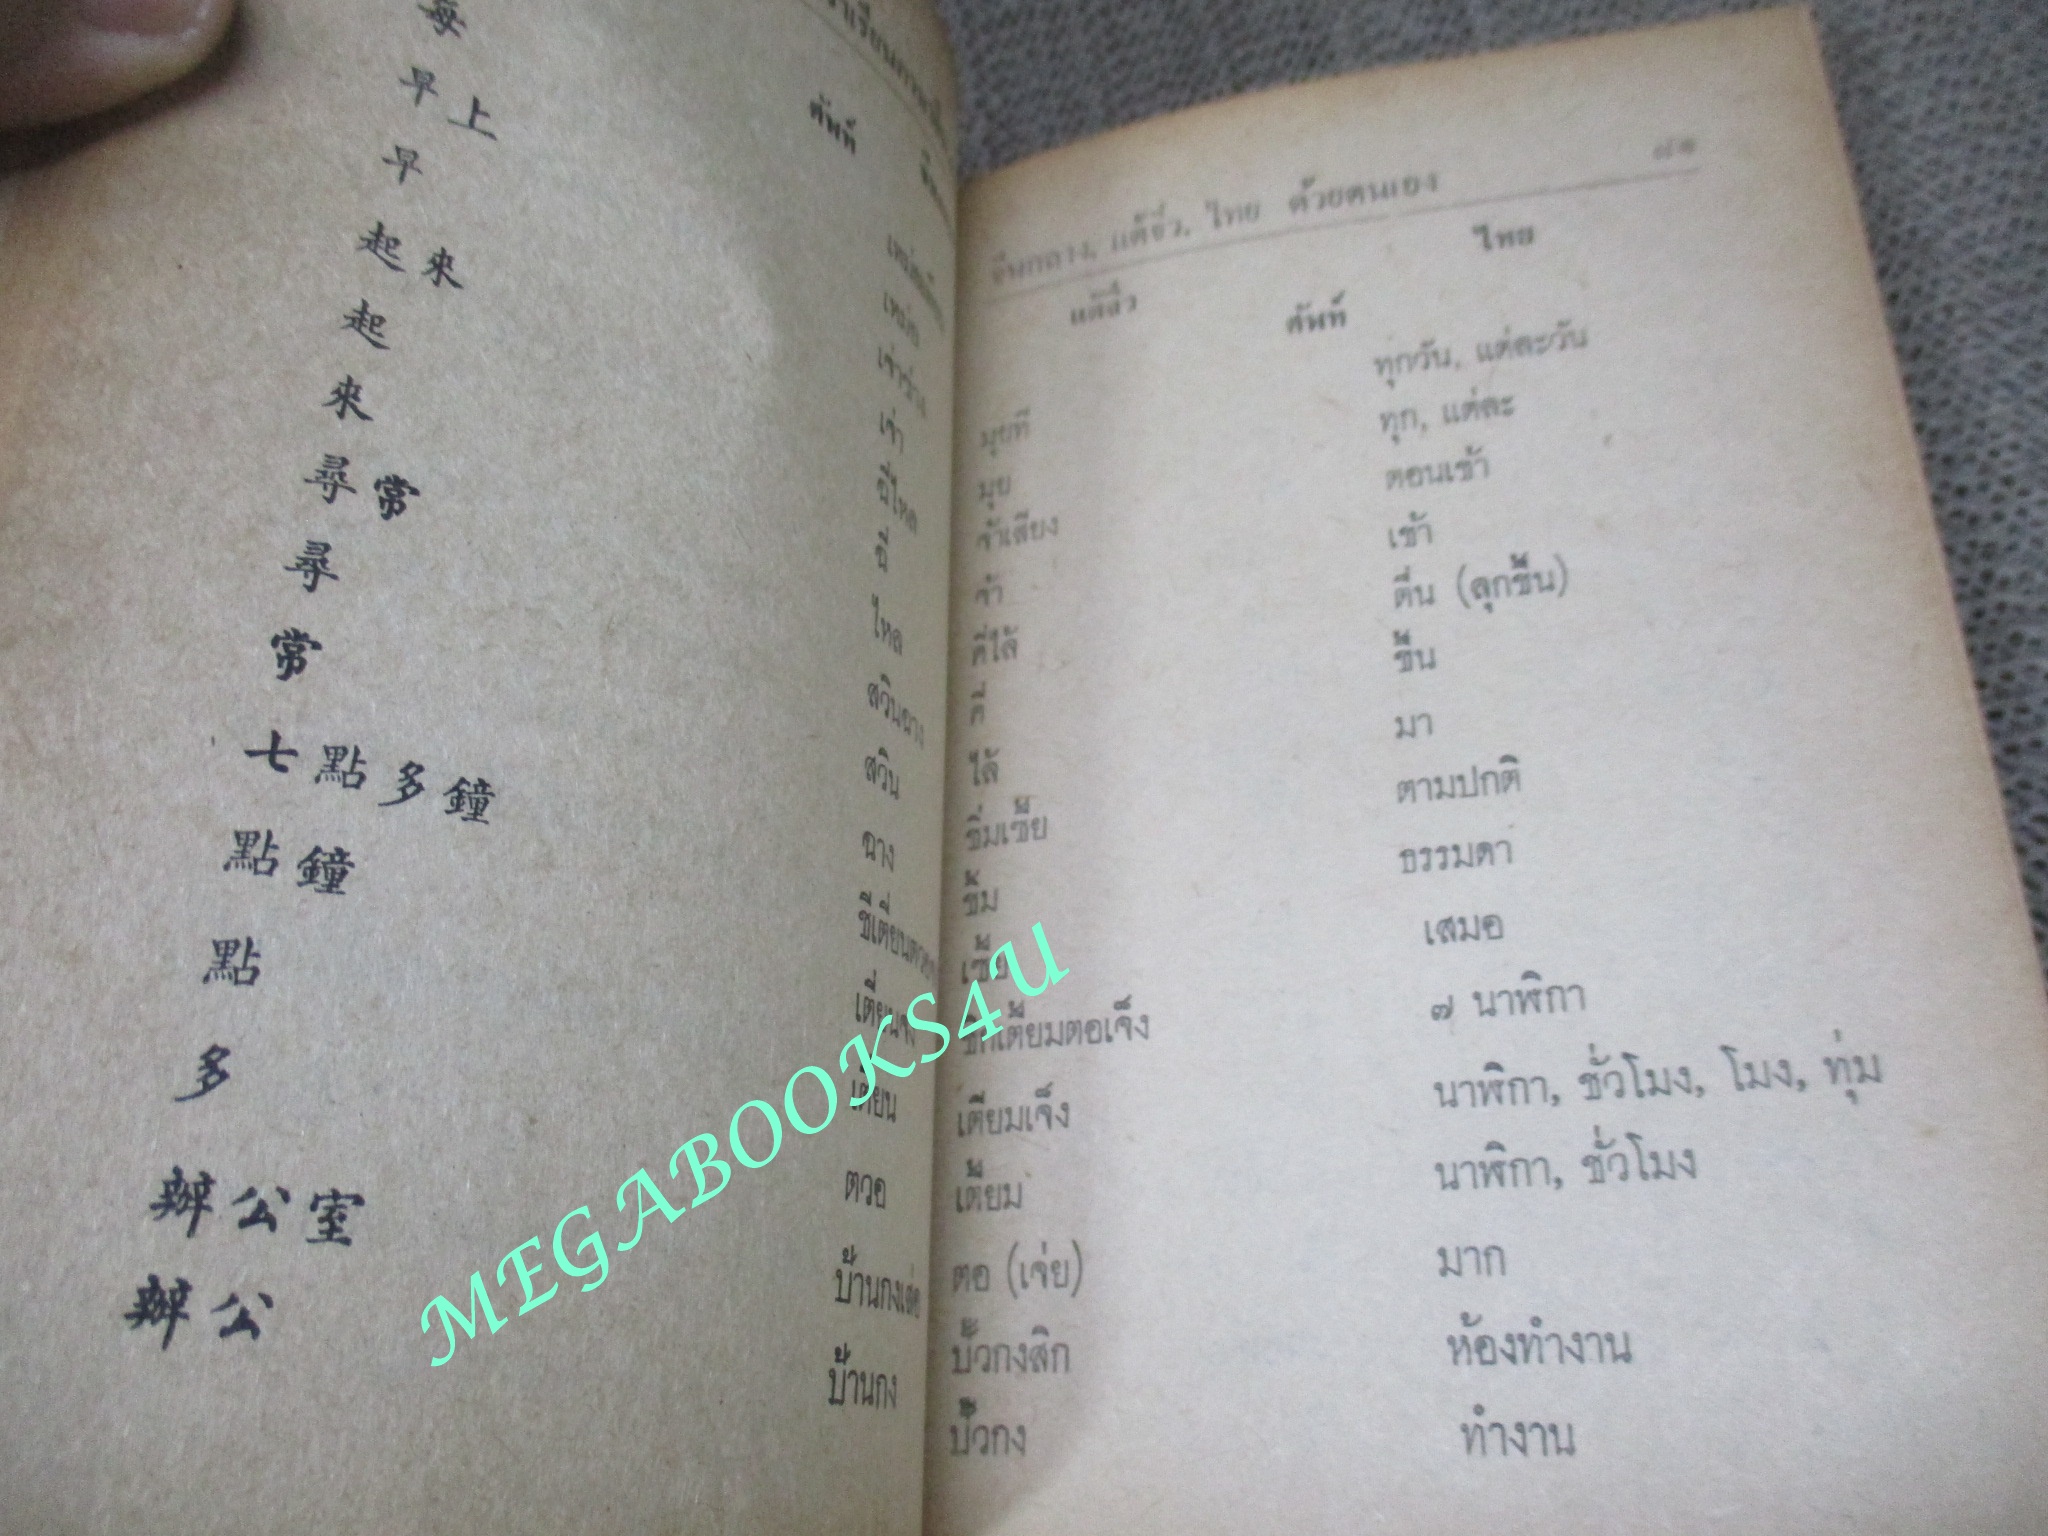 ศัพท์
每
早上
早
起來
起
來
尋常
尋
常
七點多鐘
點鐘
點
多
辦公室
辦公
เช่า
ฉี่ไหล
ฉี่
ไหล
สวินฉาง
สวิน
ฉาง
เตี่ยน
ตวอ
บ้านกง
จีนกลาง, แต้จิ๋ว, ไทย ด้วยตนเอง
แต้จิ๋ว ศัพท์ ไทย
ทุกวัน, แต่ละวัน
มุยที ทุก, แต่ละ
มุย ตอนเช้า
จ้าเสียง เช้า
จ้า ตื่น (ลุกขึ้น)
คี่ไล้ ขึ้น
คี่ มา
ไล้ ตามปกติ
ซิ่มเซ้ย ธรรมดา
ซิ้ม เสมอ
เซ้ย ๗ นาฬิกา
ชิกเตี้ยมตอเจ็ง นาฬิกา, ชั่วโมง, โมง, ทุ่ม
เตียมเจ็ง นาฬิกา, ชั่วโมง
เตี้ยม มาก
ตอ (เจ่ย) ห้องทำงาน
บั้วกงสิก ทำงาน
บั้วกง
MEGABOOKS4U